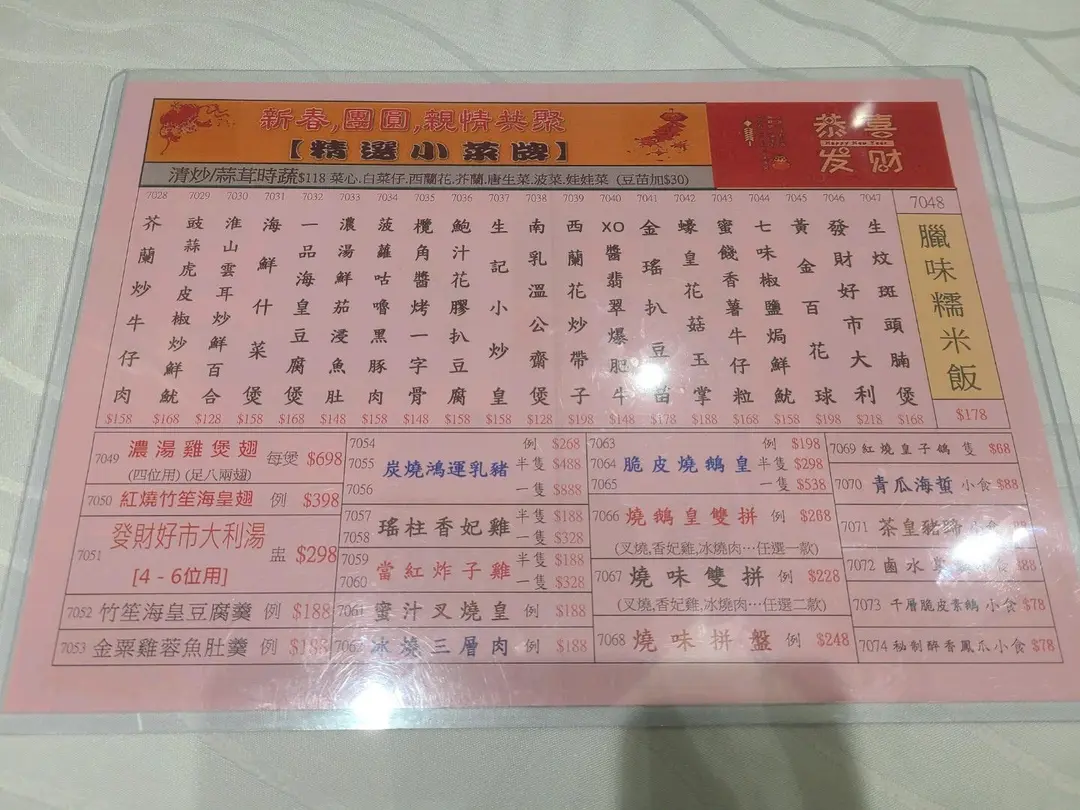 新春,團圓,親情共聚
【精選小菜牌】
恭喜
Happy New Year
发财
清炒/蒜茸時蔬$118 菜心.白菜仔.西蘭花.芥蘭.唐生菜.波菜.娃娃菜 (豆苗加$30)
7028 芥蘭炒牛仔肉 $158
7029 豉蒜虎皮椒炒鮮魷 $168
7030 淮山雲耳炒鮮百合 $128
7031 海鮮什菜煲 $158
7032 一品海皇豆腐煲 $168
7033 濃湯鮮茄浸魚肚 $148
7034 菠蘿咕嚕黑豚肉 $158
7035 欖角醬烤一字骨 $148
7036 鮑汁花膠扒豆腐 $158
7037 生記小炒皇 $158
7038 南乳溫公齋煲 $128
7039 西蘭花炒帶子 $198
7040 XO醬翡翠爆肥牛 $148
7041 金瑤扒豆苗 $178
7042 蠔皇花菇玉掌 $188
7043 蜜餞香薯牛仔粒 $168
7044 七味椒鹽焗鮮魷 $158
7045 黃金百花球 $198
7046 發財好市大利 $218
7047 生炆斑頭腩煲 $168
7048 臘味糯米飯 $178
7049 濃湯雞煲翅 每煲 $698
(四位用) (足八兩翅)
7050 紅燒竹笙海皇翅 例 $398
7051 發財好市大利湯 盅 $298
[4 - 6位用]
7052 竹笙海皇豆腐羹 例 $188
7053 金粟雞蓉魚肚羹 例 $188
7054 例 $268
7055 炭燒鴻運乳豬 半隻 $488
7056 一隻 $888
7057 瑤柱香妃雞 半隻 $188
7058 一隻 $328
7059 當紅炸子雞 半隻 $188
7060 一隻 $328
7061 蜜汁叉燒皇 例 $188
7062 冰燒三層肉 例 $188
7063 例 $198
7064 脆皮燒鵝皇 半隻 $298
7065 一隻 $538
7066 燒鵝皇雙拼 例 $268
(叉燒,香妃雞,冰燒肉…任選一款)
7067 燒味雙拼 例 $228
(叉燒,香妃雞,冰燒肉…任選二款)
7068 燒味拼盤 例 $248
7069 紅燒皇子鴿 隻 $68
7070 青瓜海蜇 小食 $88
7071 茶皇豬蹄 小食
7072 鹵水
7073 千層脆皮素鵝 小食 $78
7074 秘制醉香鳳爪 小食 $78